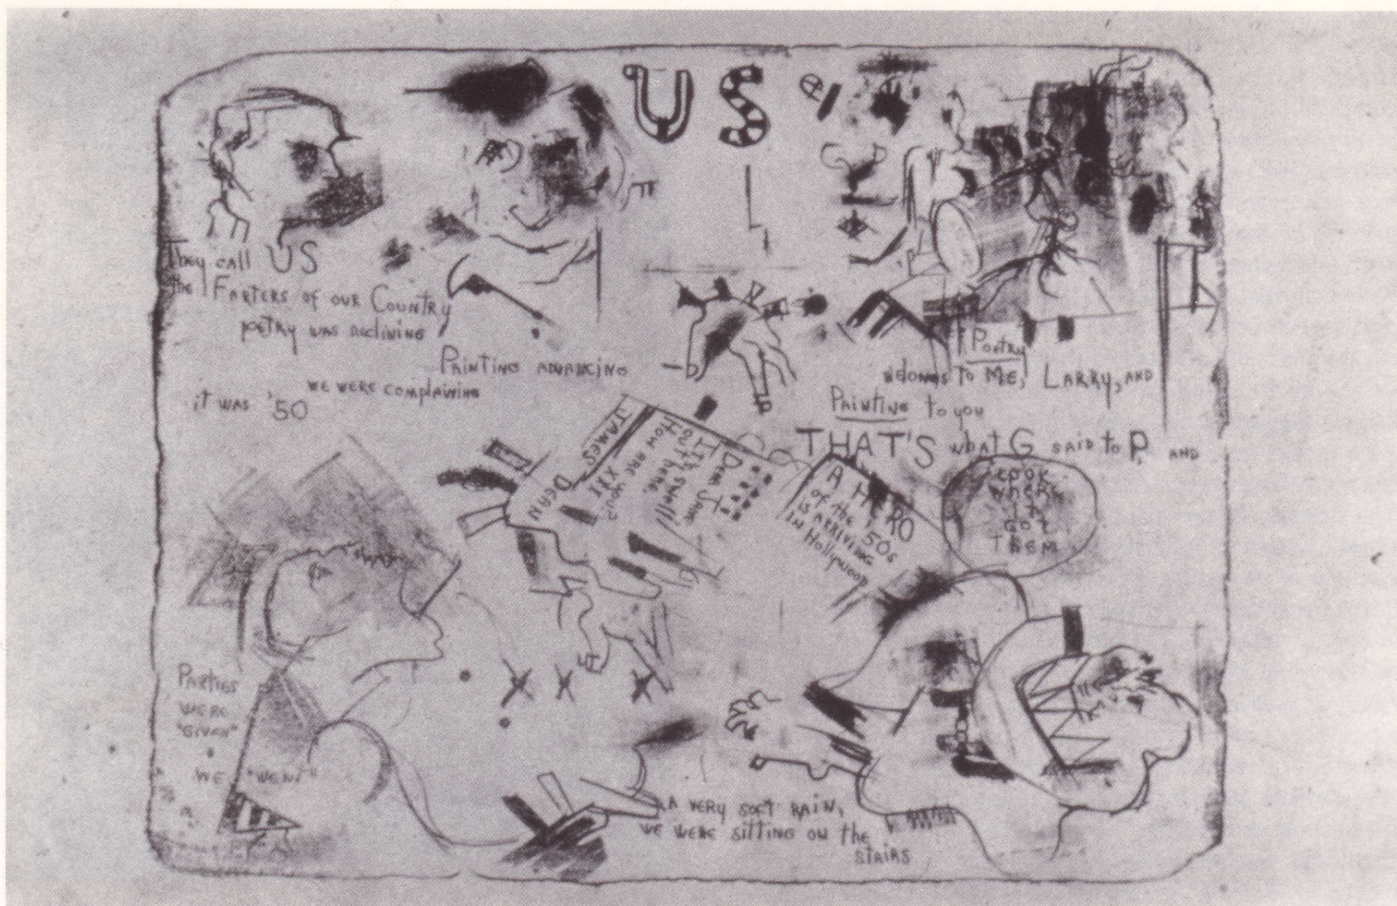 US
They call US
the FARTERS OF OUR COUNTRY
POETRY WAS DECLINING
PAINTING ADVANCING
WE WERE COMPLAINING
it WAS '50
POETRY
BELONGS TO ME, LARRY, AND
PAINTING to you
THAT'S what G SAID to P. AND
LOOK
WHERE
IT
GOT
THEM
JAMES
DEAN
Dear Jane
It's swell
out here.
How ARE
you?
A HERO
of the '50s
IS ARRIVING
IN Hollywood
PARTIES
WERE
"GIVEN"
WE "WENT"
A VERY SOFT RAIN,
WE WERE SITTING ON the
STAIRS